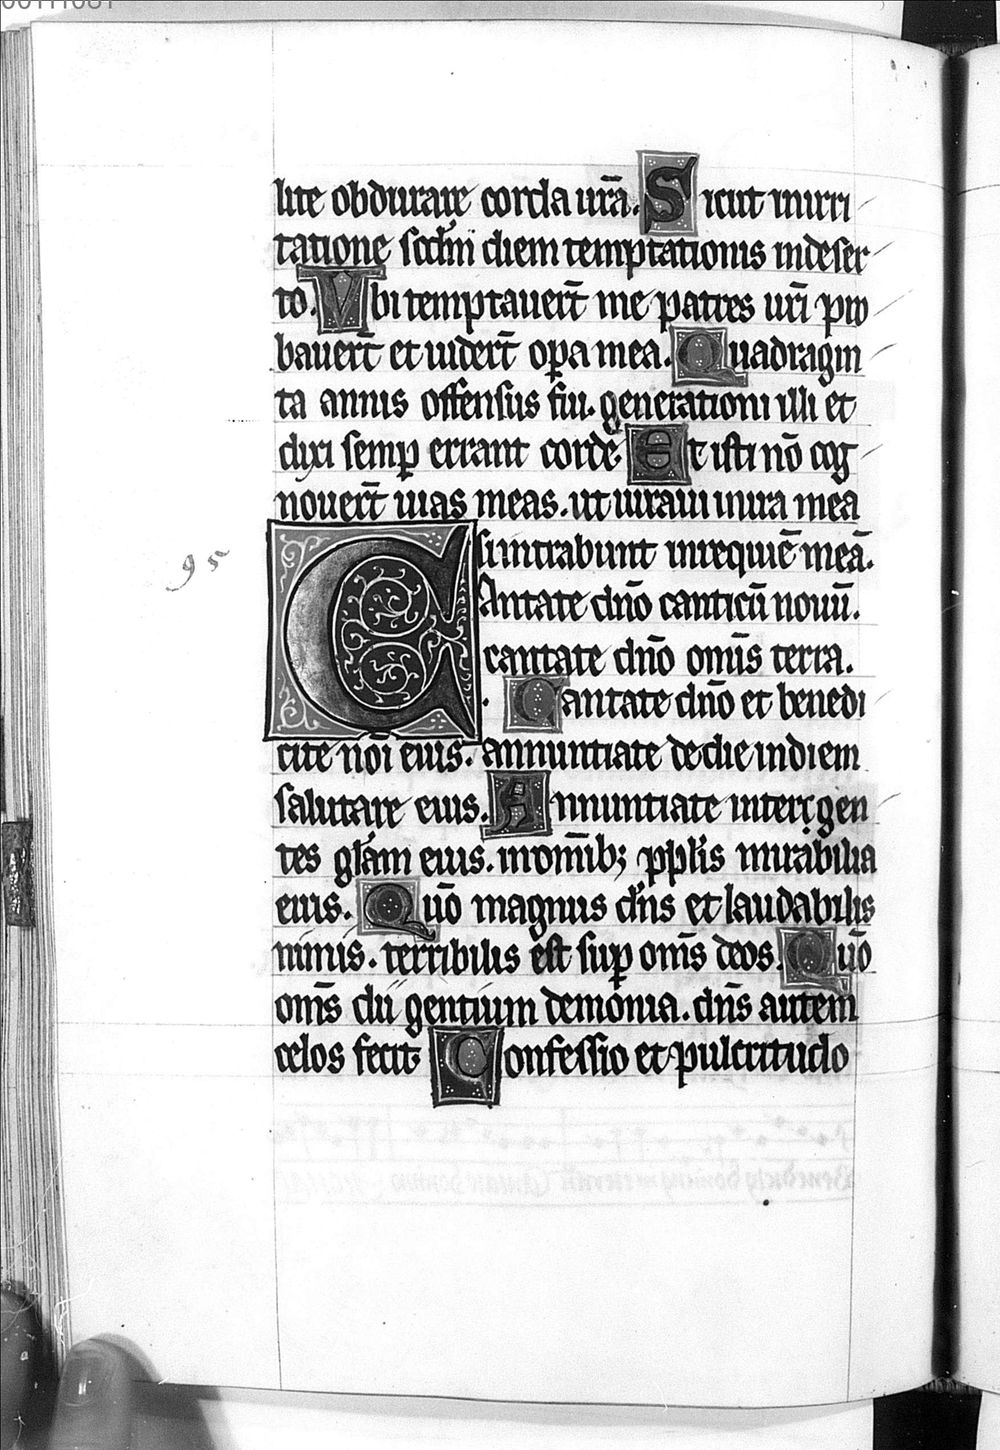 00111081
lite obdurare corda ur̄a. Sicut inirri
tatione scđm diem temptationis indeser
to. Vbi temptauer̄t me patres ur̄i pro
bauer̄t et uider̄t oꝑa mea. Quadragin
ta annis offensus fui. generationi illi et
dixi semꝑ errant corde. Et isti nō cog
nouer̄t uias meas. ut iuraui inira mea
si intrabunt inrequiē meā.
Cantate dn̄o canticū nouū.
cantate dn̄o omīs terra.
Cantate dn̄o et benedi
cite nōi eius. annuntiate dedie indiem
salutare eius. Annuntiate inter gen
tes glām eius. inomīb; ppłis mirabilia
eius. Quō magnus dn̄s et laudabilis
nimis. terribilis est suꝑ omīs deos. Quō
omīs dii gentium demonia. dn̄s autem
celos fecit. Confessio et pulcritudo
95